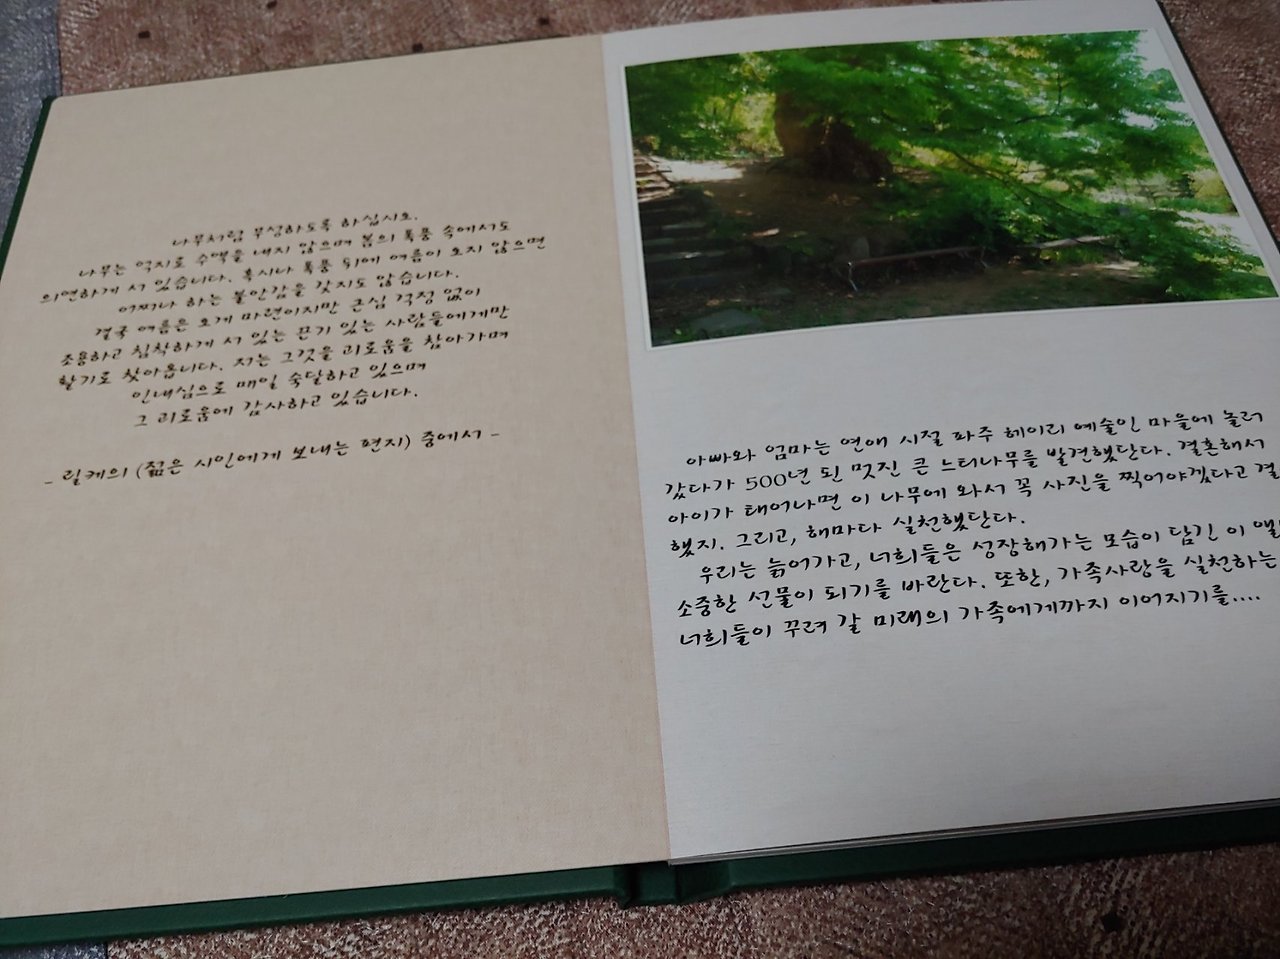 나무처럼 무심하도록 하십시오.
나무는 억지로 수액을 내지 않으며 봄의 폭풍 속에서도
의연하게 서 있습니다. 혹시나 폭풍 뒤에 여름이 오지 않으면
어쩌나 하는 불안감을 갖지도 않습니다.
결국 여름은 오게 마련이지만 근심 걱정 없이
조용하고 침착하게 서 있는 끈기 있는 사람들에게만
찾아옵니다. 저는 그것을 괴로움을 참아가며
인내심으로 매일 숙달하고 있으며
그 괴로움에 감사하고 있습니다.
- 릴케의 (젊은 시인에게 보내는 편지) 중에서 -
아빠와 엄마는 연애 시절 파주 헤이리 예술인 마을에 놀러
갔다가 500년 된 멋진 큰 느티나무를 발견했단다. 결혼해서
아이가 태어나면 이 나무에 와서 꼭 사진을 찍어야겠다고 결
했지. 그리고, 해마다 실천했단다.
우리는 늙어가고, 너희들은 성장해가는 모습이 담긴 이 앨
소중한 선물이 되기를 바란다. 또한, 가족사랑을 실천하는
너희들이 꾸려 갈 미래의 가족에게까지 이어지기를....